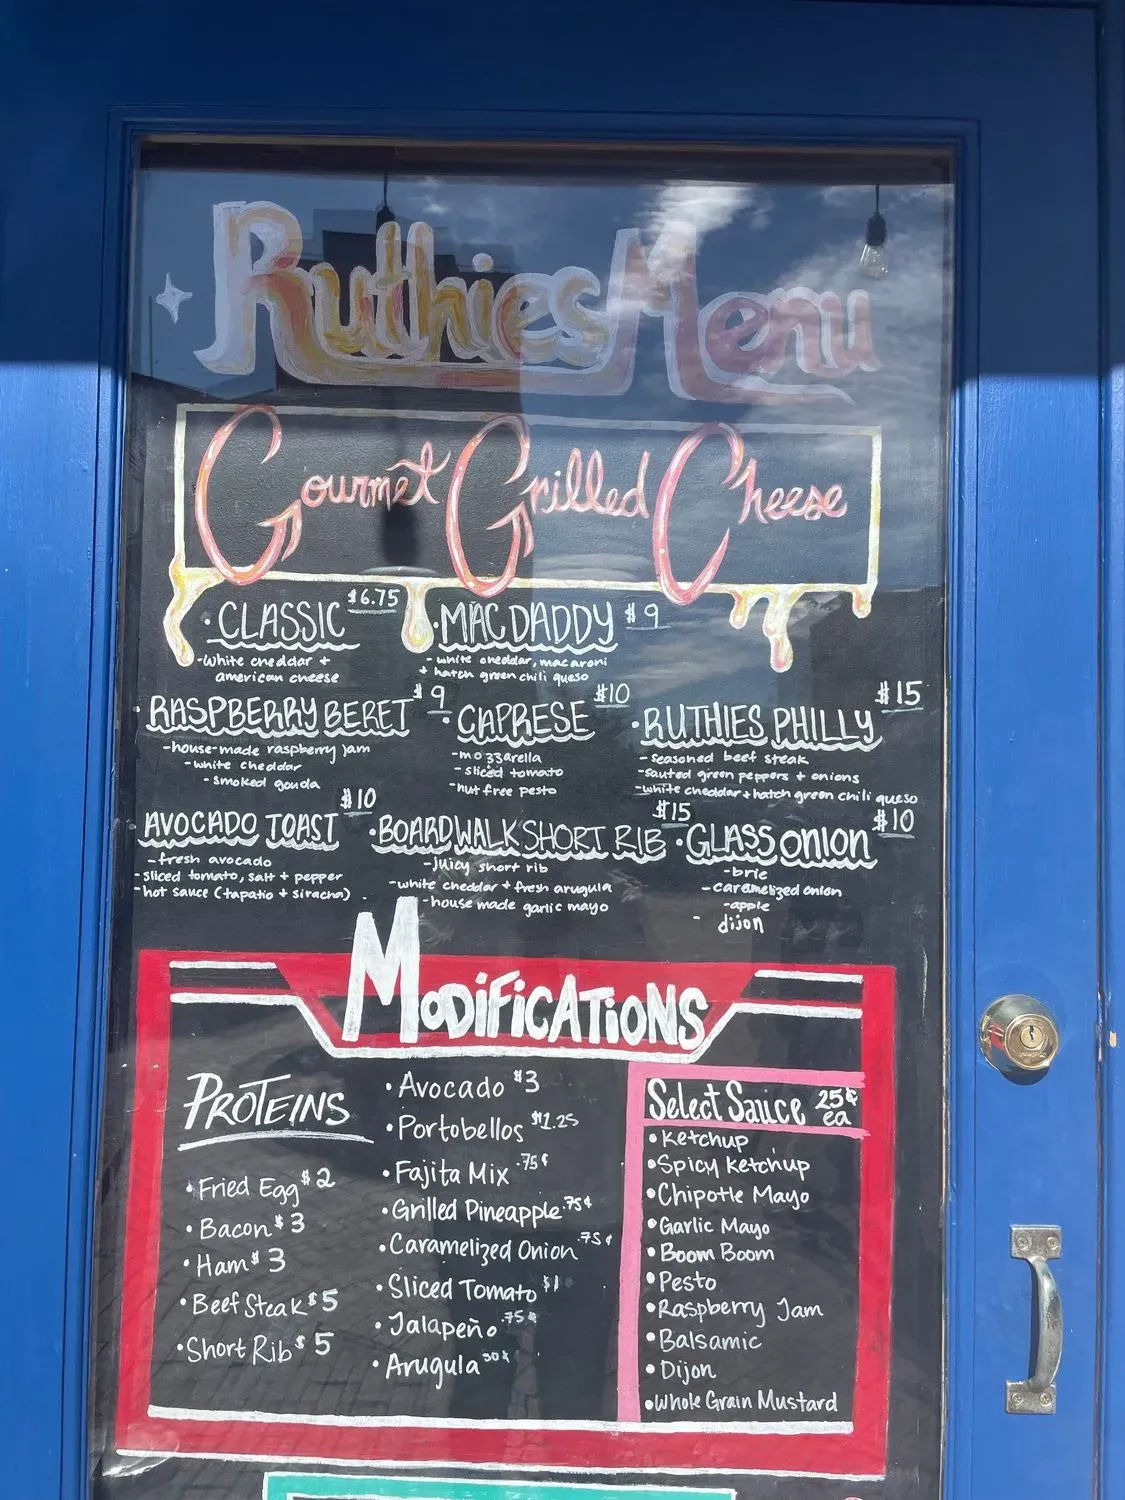 Ruthies Menu
Gourmet Grilled Cheese
• CLASSIC $6.75
-white cheddar +
american cheese
• MAC DADDY $9
- white cheddar, macaroni
+ hatch green chili queso
• RASPBERRY BERET $9
-house-made raspberry jam
-white cheddar
-smoked gouda
• CAPRESE $10
-mozzarella
-sliced tomato
-nut free pesto
• RUTHIES PHILLY $15
-seasoned beef steak
-sauted green peppers + onions
-white cheddar + hatch green chili queso
AVOCADO TOAST $10
-fresh avocado
-sliced tomato, salt + pepper
-hot sauce (tapatio + siracha)
• BOARDWALK SHORT RIB $15
-juicy short rib
-white cheddar + fresh arugula
-house made garlic mayo
• GLASS onion $10
-brie
-caramelized onion
-apple
- dijon
MODiFiCATiONS
PROTEINS
• Fried Egg $2
• Bacon $3
• Ham $3
• Beef Steak $5
• Short Rib $5
• Avocado $3
• Portobellos $1.25
• Fajita Mix .75¢
• Grilled Pineapple .75¢
• Caramelized Onion .75¢
• Sliced Tomato $1
• Jalapeño .75¢
• Arugula 50¢
Select Sauce 25¢ ea
• Ketchup
• Spicy Ketchup
• Chipotle Mayo
• Garlic Mayo
• Boom Boom
• Pesto
• Raspberry Jam
• Balsamic
• Dijon
• Whole Grain Mustard